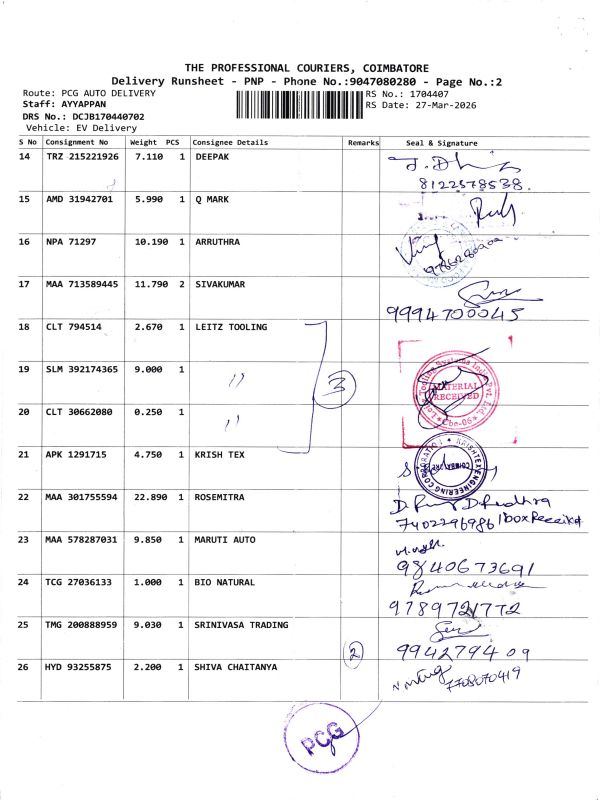 THE PROFESSIONAL COURIERS, COIMBATORE
Delivery Runsheet - PNP - Phone No.:9047080280 - Page No.:2
Route: PCG AUTO DELIVERY
RS No.: 1704407
Staff: AYYAPPAN
RS Date: 27-Mar-2026
DRS No.: DCJB170440702
Vehicle: EV Delivery
S No Consignment No Weight PCS Consignee Details Remarks Seal & Signature
14 TRZ 215221926 7.110 1 DEEPAK
8122578538.
15 AMD 31942701 5.990 1 Q MARK
16 NPA 71297 10.190 1 ARRUTHRA
17 MAA 713589445 11.790 2 SIVAKUMAR
9994700045
18 CLT 794514 2.670 1 LEITZ TOOLING
19 SLM 392174365 9.000 1 〃
3
MATERIAL
RECEIVED
Cbe-06
20 CLT 30662080 0.250 1 〃
21 APK 1291715 4.750 1 KRISH TEX
22 MAA 301755594 22.890 1 ROSEMITRA
7402296986 1box Received
23 MAA 578287031 9.850 1 MARUTI AUTO
9840673691
24 TCG 27036133 1.000 1 BIO NATURAL
9789721772
25 TMG 200888959 9.030 1 SRINIVASA TRADING
2
9942794 09
26 HYD 93255875 2.200 1 SHIVA CHAITANYA
7708070419
PCG